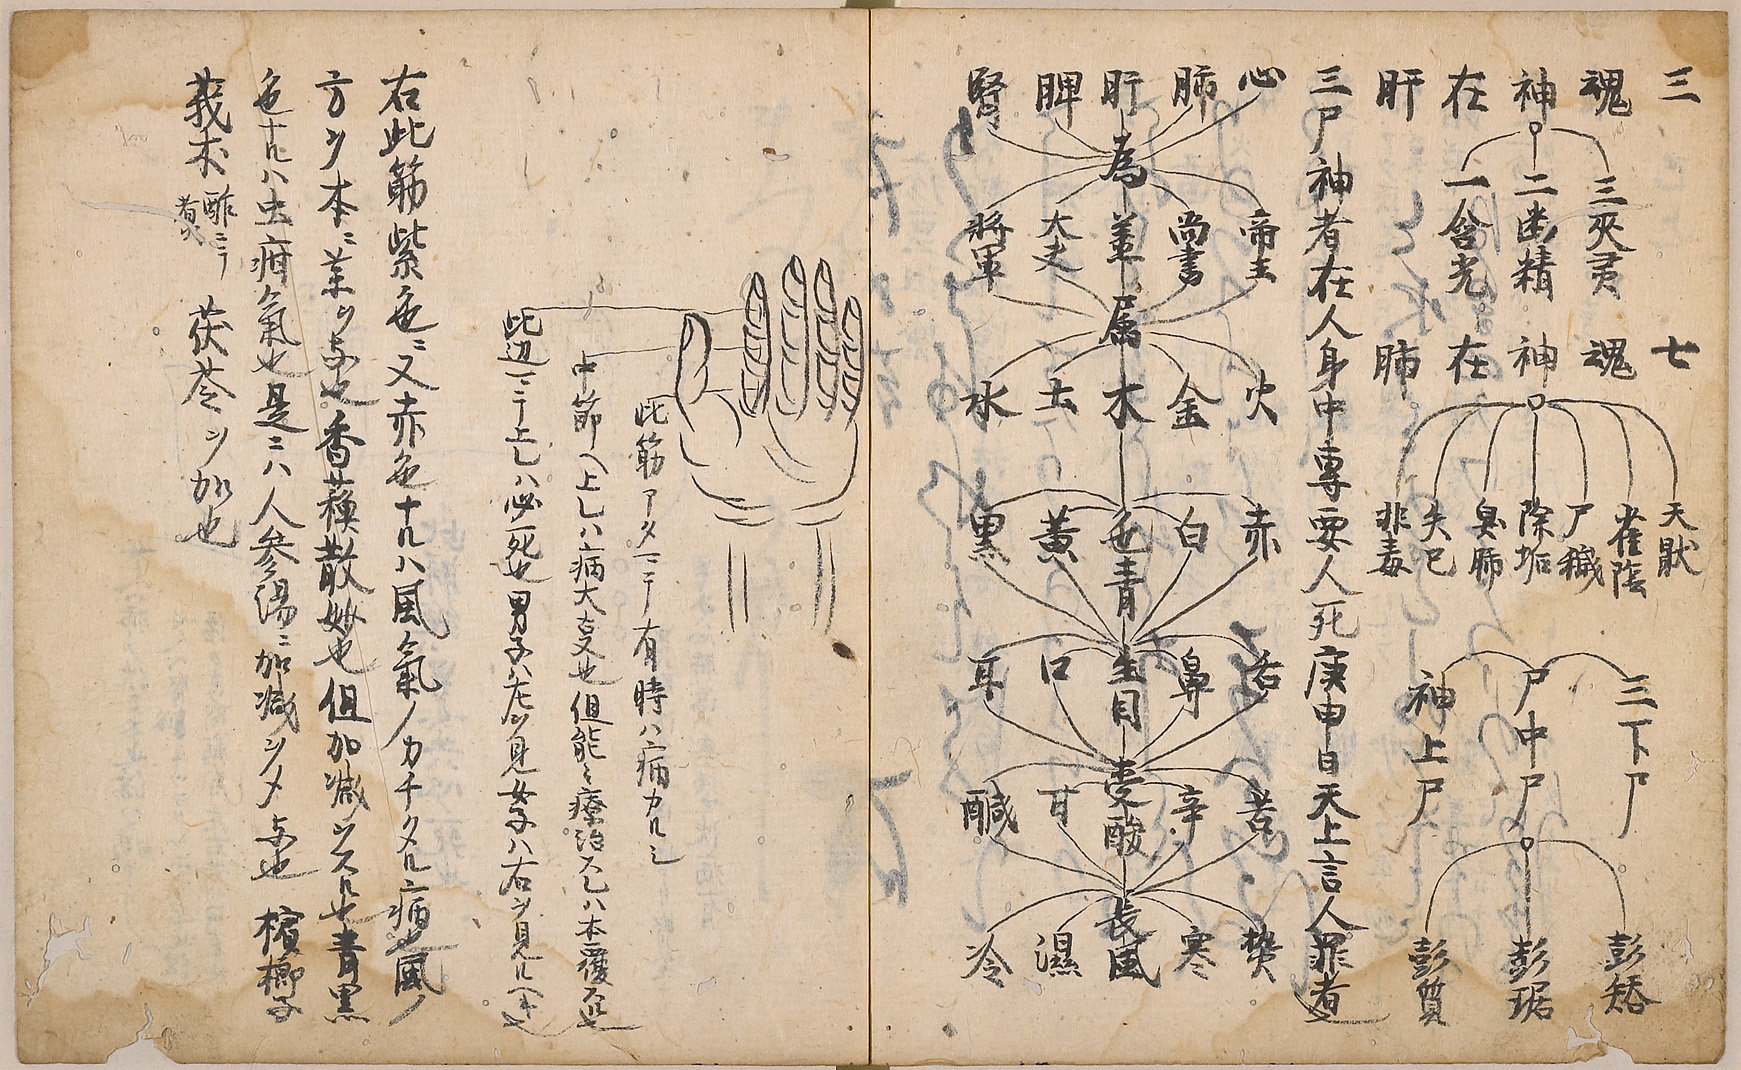 三魂神在肝
三夾霊
二幽精
一含光
七魂神在肺
天賊
雀陰
尸穢
除垢
臭肺
失巳
非毒
三尸神
下尸
中尸
上尸
彭矯
彭琚
彭質
三尸神者在人身中專要人死庚申日天上言人罪者
心肺肝脾腎
為
帝王 尚書 大夫 將軍
属
火金木土水
色
赤白青黄黒
生
舌鼻目口耳
受
苦辛酸甘醎
長
熱寒風濕冷
此筋アタマニテ有時ハ病カルシ
中節ヘ上レハ病大支也但能々療治スレハ本覆スル也
此辺マテ上レハ必死也男子ハ左ヲ見女子ハ右ヲ見ルヘキ也
右此筋紫色ニ又赤色ナルハ風氣ノカチタル病也風ノ
方ヲ本ニ薬ヲ与也香蘓散妙也但加減ヲスル也青黒
色ナルハ虫疳氣也是ニハ人参湯ニ加減ヲメ与也 檳榔子
莪朮 酢ニテ煮 茯苓ヲ加也